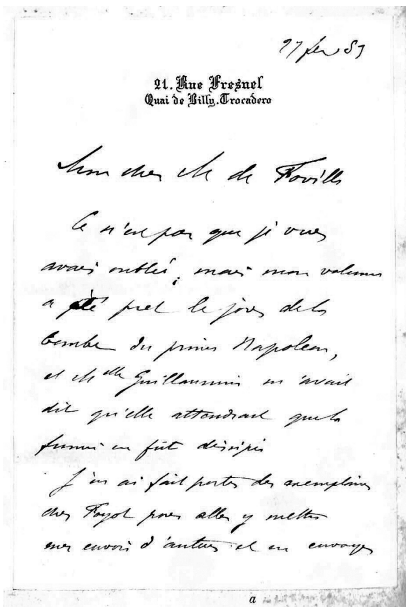 27 fév 83
21. Rue Fresnel
Quai de Billy. Trocadero
Mon cher M de Foville
Ce n'est pas que je vous
avais oublié, mais mon volume
a été prêt le jour de la
bombe du prince Napoléon,
et Melle Guillaumin m'avait
dit qu'elle attendrait que la
fumée en fût dissipée
J'en ai fait porter des exemplaires
chez Fayot pour aller y mettre
mes envois d'auteur et en envoyer
a